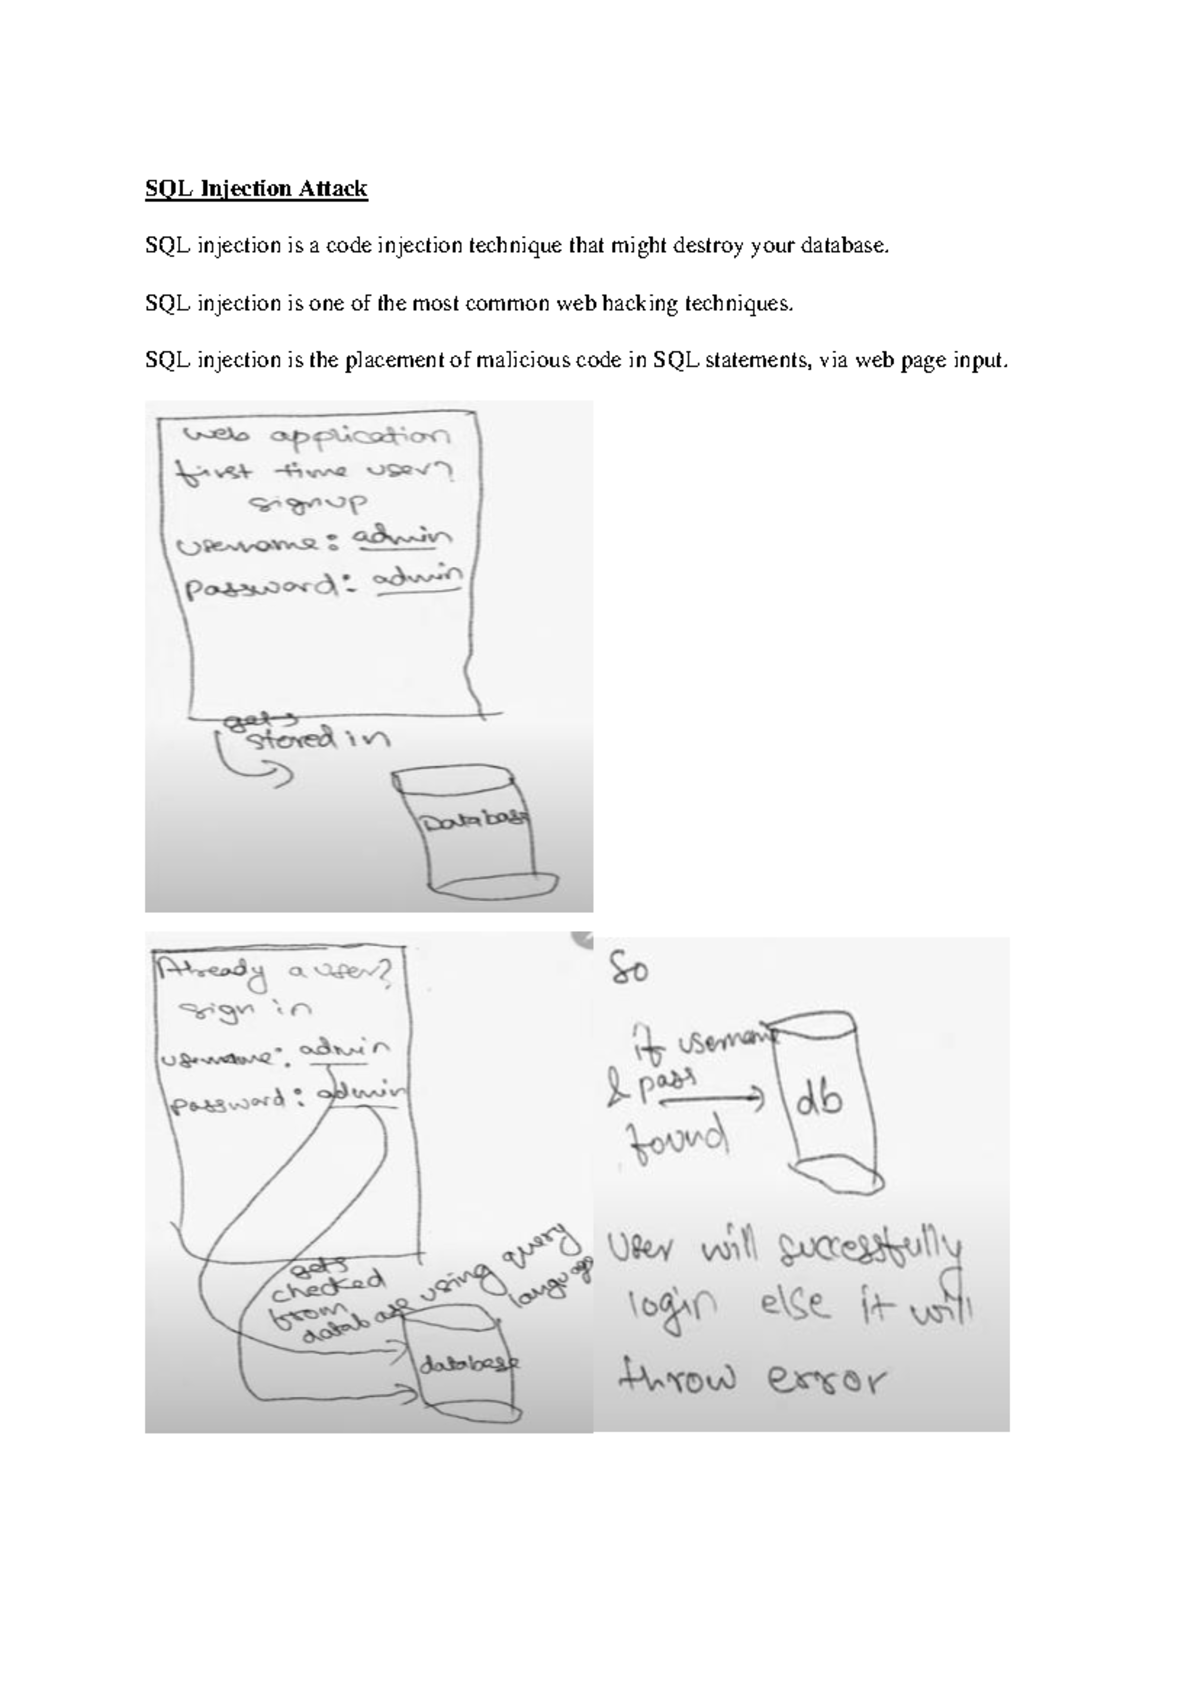 SQL Injection Attack
SQL injection is a code injection technique that might destroy your database.
SQL injection is one of the most common web hacking techniques.
SQL injection is the placement of malicious code in SQL statements, via web page input.
web application
first time user?
signup
username: admin
password: admin
gets
stored in
Database
Already a user?
sign in
username: admin
password: admin
gets
checked
from
database using query
language
database
So
if username
& pass
found
db
User will successfully
login else it will
throw error